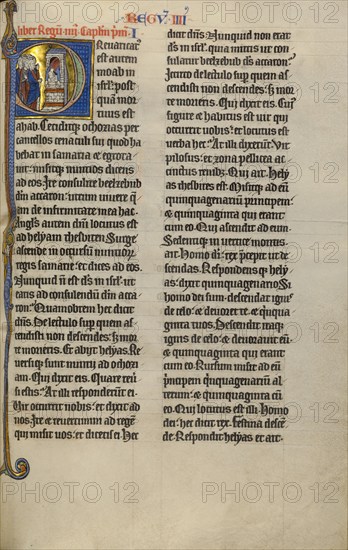 REGV̄ IIII
liber Regū · iiij · Capl'm p'm · I
Preuaricat'
est autem
moab in
isr̄l · post
quā mor
tuus est
ahab · Ceciditq; ochozias per
cancellos cenaculi sui quod ha
bebat in samaria et egrota
uit · misitq; nuntios dicens
ad eos · Ite consulite beelzebub
dm̄ accaron · utrum uiuere q̄
am de infirmitate mea hac ·
Angl's autem dn̄i locutus est
ad helyam thesbiten · Surge
ascende in occursum nuntiorȝ
regis samarie et dices ad eos ·
Nunquid n̄ est ds̄ in isr̄l · ut
eatis ad consulendū dm̄ acca
ron · Quamobrem hec dicit
dn̄s · De lectulo sup̄ quem as
cendisti non descendes · sȝ mor
te morieris · Et abijt helyas · Re
uersiq; sunt nuntij ad ochozi
am · Qui dixit eis · Quare reu'
si estis · At illi responderūt ei ·
Vir occurrit nobis · et dixit ad
nos · Ite et reuertimini ad regē
qui misit uos · et dicetis ei · Hec
dicit dn̄s · Nunquid non erat
ds̄ in isr̄l · quia mittis ut con
sulatur beelzebub ds̄ accaron ·
Iccirco de lectulo sup̄ quem as
cendisti non descendes · sȝ mor
te morieris · Qui dixit eis · Cui'
figure et habitus est uir qui
occurrit uobis · et locutus est
uerba hec · At illi dixerūt · Vir
pilosus · et zona pellicea ac
cinctus renibȝ · Qui ait · Helyas
thesbites est · Misitq; ad eū
quinquagenarium principem ·
et quinquaginta qui erant
cum eo · Qui ascendit ad eum ·
Sedentiq; in uertice montis ·
ait · Homo di · rex p̄cepit ut de
scendas · Respondensq; hely
as · dixit quinquagenario · Si
homo dei sum · descendat ignis
de celo · et deuoret te · et q̄nqua
ginta tuos · Descendit itaq;
ignis de celo · et deuorauit eū ·
et quinquaginta qui erant
cum eo · Rursum misit ad eū
p̄ncipem q̄nquagenariū al
terum · et quinquaginta cū
eo · Qui locutus est illi · Homo
dei · hec dicit rex · festina descē
de · Respondit helyas et ait ·